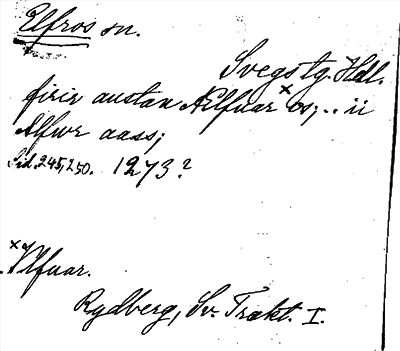 Elfros sn.
Svegs tg. Hdl.
firir austan Ælfuar x os; .. ii
Alfwr aass;
Sid. 245, 250. 1273?
x Ylfuar.
Rydberg, Sv. Trakt. I.